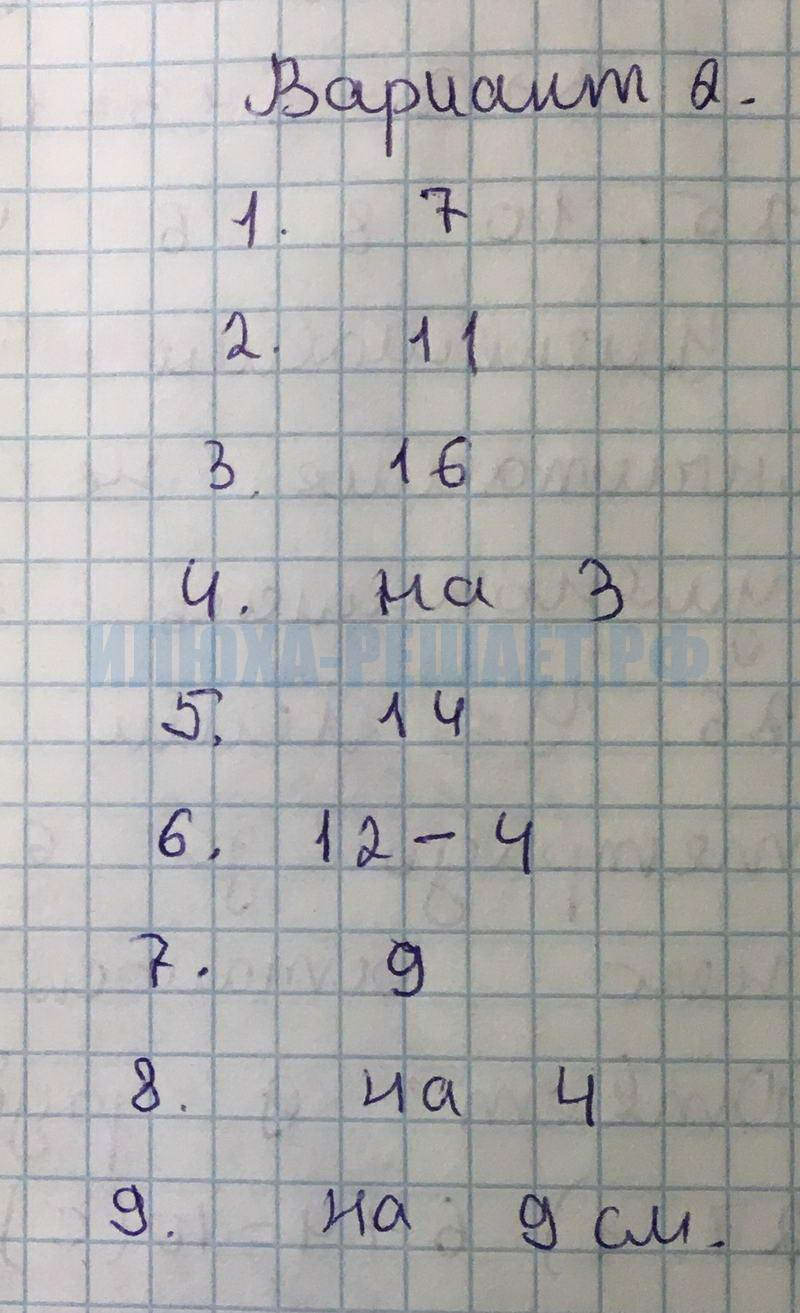 Вариант 2.
1. 7
2. 11
3. 16
4. на 3
ИЛЮХА-РЕШАЕТ.РФ
5. 14
6. 12 - 4
7. 9
8. на 4
9. на 9 см.